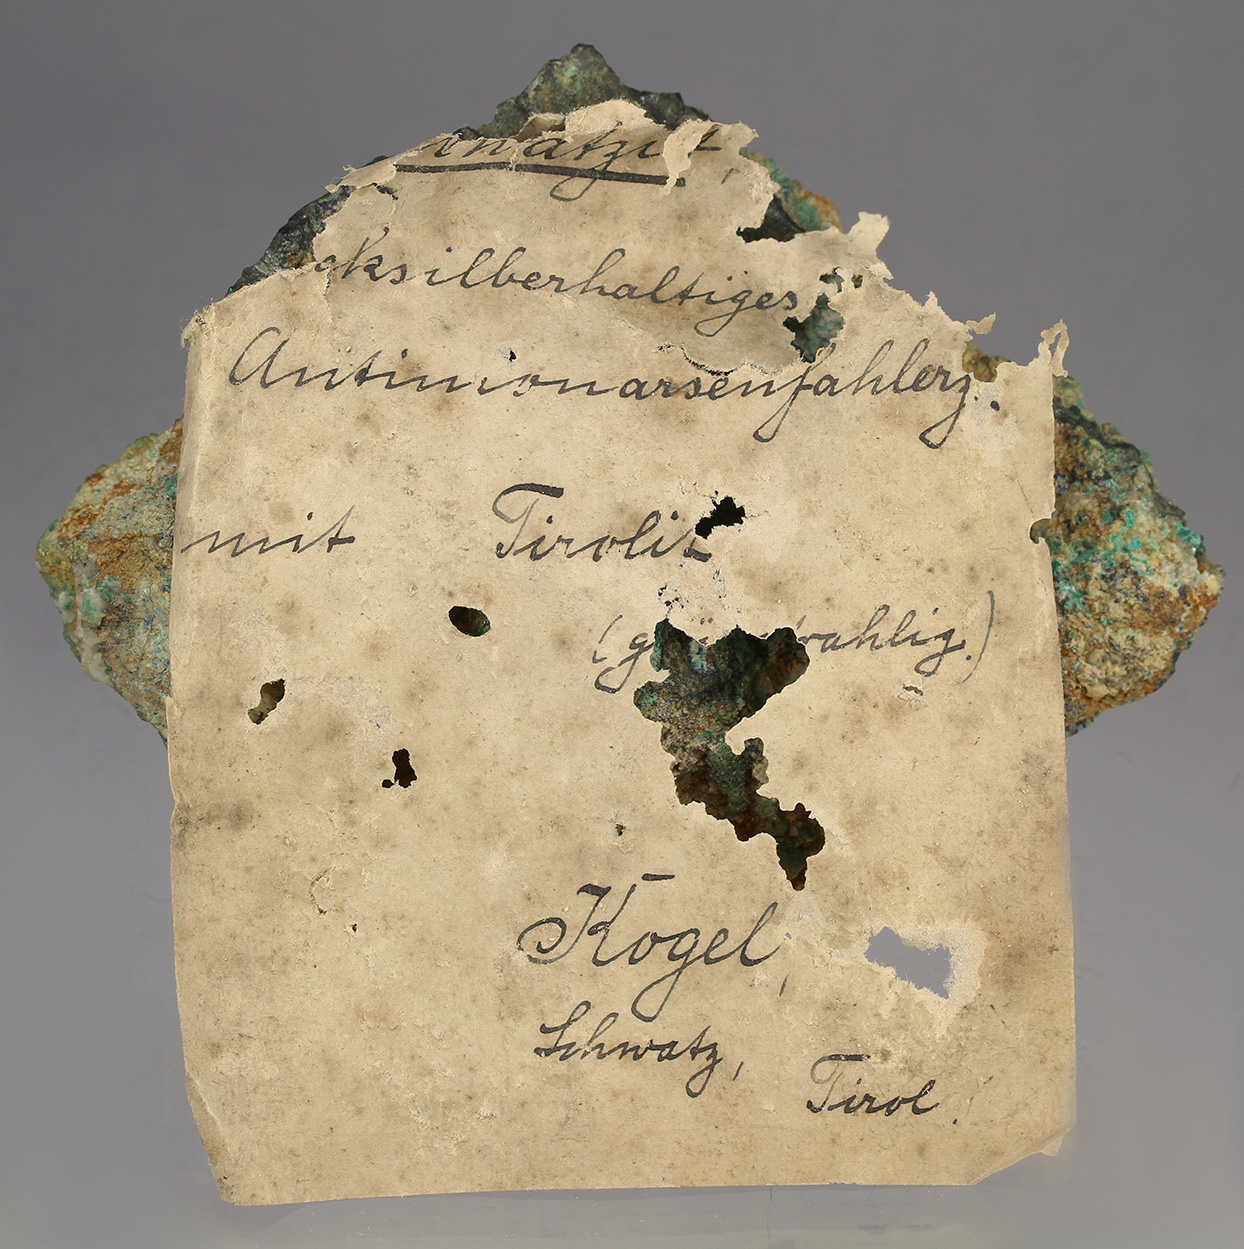 watzit,
cksilberhaltiges
Antimonarsenfahlerz.
mit Tirolit
(g rahlig.)
Kogel,
Schwatz,
Tirol.